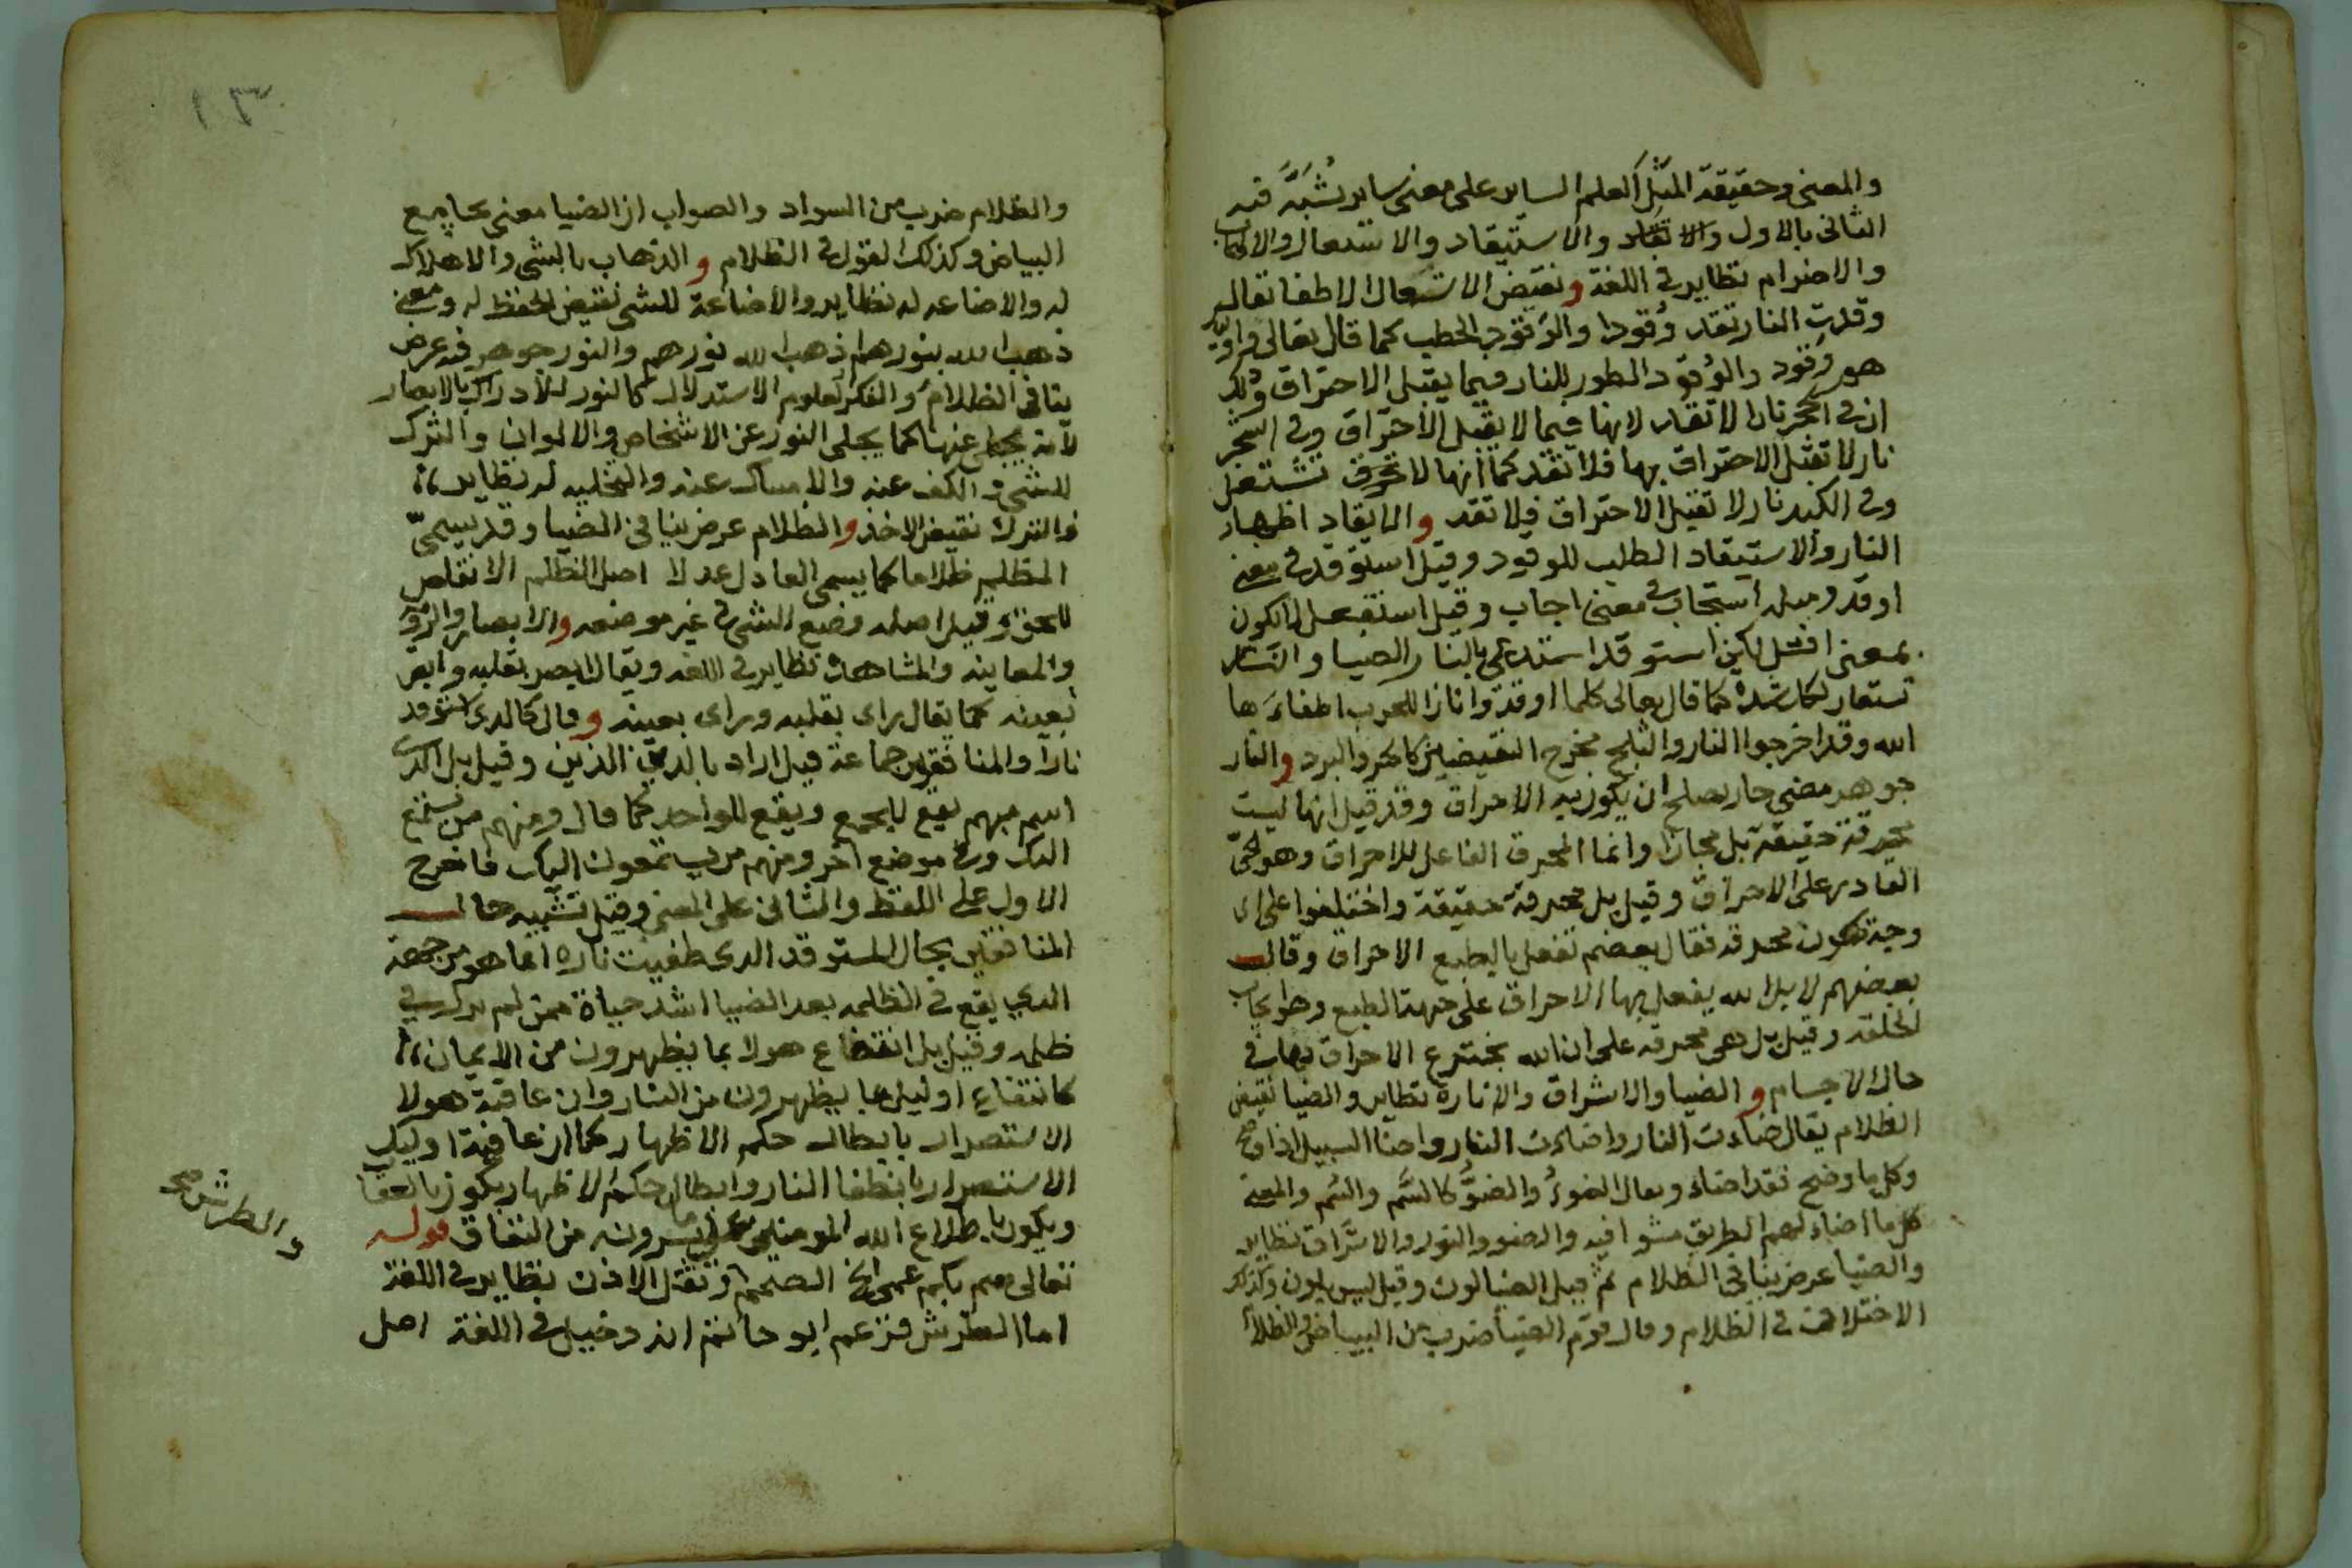 والمعنى وحقيقة المثل العلم الساير على معنى ساير يُشَبَّه فيه
الثانى بالاول والاتقاد والاستيقاد والاشتعال والالتهاب
والاضرام نظاير فى اللغة ونقيض الاشتعال الاطفا تقال
وقدت النار تقد وُقودا والوَقود الحطب كما قال تعالى
هم وَقود والوُقود الظهور للنار فيما يقبل الاحتراق وذلك
ان فى الحجر نارا لا تقد لانها فيما لا يقبل الاحتراق وفى الشجر
نار لا تقبل الاحتراق بها فلا تقد كما انها لا تحرق تشتعل
وفى الكبد نار لا تقبل الاحتراق فلا تقد والايقاد اظهار
النار والاستيقاد الطلب للوقود وقيل استوقد فى معنى
اوقد ومثله استجاب فى معنى اجاب وقيل استفعل لا تكون
بمعنى افعل لكن استوقد استدعى بالنار الضيا والنار
تستعار لكل شدة كما قال تعالى كلما اوقدوا نارا للحرب اطفاءها
الله وقد اخرجوا النار والثلج مخرج النقيضين كالحر والبرد والنار
جوهر مضى حار يصلح ان يكون به الاحراق وقد قيل انها ليست
محرقة حقيقة بل مجازا وانما المحرق الفاعل للاحراق وهو الحىّ
القادر على الاحراق وقيل بل محرقة حقيقة واختلفوا على اى
وجه تكون محرقه فقال بعضهم تفعل بالطبع الاحراق وقال
بعضهم لا بل الله يفعل بها الاحراق على جهة الطبع وهو ايجاب
الخلقه وقيل بل هى محرقه على ان الله يخترع الاحراق بها فى
حال الاجسام والضيا والاشراق والانارة نظاير والضيا نقيض
الظلام يقال ضاءت النار واضاءت النار واضا السبيل اذا وضح
وكل ما وضح فقد اضاء ويقال الضوءُ والضوُّ كالسَّم والسُّم والمعنى
كل ما اضاء لهم الطريق مشوا فيه والضو والنور والاشراق نظاير
والضيا عرض ينافى الظلام ثم قيل الضيا لون وقيل ليس بلون وكذلك
الاختلاف فى الظلام وقال قوم الضيا ضرب من البياض والظلام
١٣
والظلام ضرب من السواد والصواب ان الضيا معنى يجامع
البياض وكذلك القول فى الظلام والذهاب بالشى والاهلاك
له والاضاعه له نظاير والاضاعة للشى نقيض الحفظ له ومعنى
ذهب الله بنورهم اذهب الله نورهم والنور جوهر فيه عرض
ينافى الظلام والفكر لعلوم الاستدلال كالنور للادراك بالابصار
لانه يجلى عنها كما يجلى النور عن الاشخاص والالوان والترك
للشى والكف عنه والامساك عنه والتخليه له نظاير
فالترك نقيض الاخذ والظلام عرض ينافى الضيا وقد يسمىّ
المظلم ظلاما كما يسمى العادل عدلا اصل الظلم الانتقاص
للحق وقيل اصله وضع الشى فى غير موضعه والابصار والرؤية
والمعاينه والمشاهدة نظاير فى اللغه ويقال ابصر بقلبه وابصر
بعينه كما يقال راى بقلبه وراى بعينه وقال كالذى استوقد
نارا والمنافقون جماعة قيل اراد بالذى الذين وقيل بل الذى
اسم مبهم يقع للجمع ويقع للواحد كما قال ومنهم من يستمع
اليك وفى موضع آخر ومنهم من يستمعون اليك فاخرج
الاول على اللفظ والثانى على المعنى وقيل تشبيه حال
المنافقين بحال المستوقد الذى طفيت ناره انما هو من جهة
الذى يقع فى الظلمه بعد الضيا اشد حياة ممن لم يزل فى
ظلمه وقيل بل انتفاع هولا بما يظهرون من الايمان
كانتفاع اوليك بما يظهرون من النار وان عاقبة هولا
الاستضرار بابطال حكم الاظهار كما ان عاقبة اوليك
الاستضرار بانطفا النار وابطال حكم الاظهار يكون بالعقاب
ويكون باطلاع الله المومنين على ما يسرونه من النفاق قوله
تعالى صم بكم عمى الخ الصمم وثقل الاذن نظاير فى اللغة
والطرش صح
اما الطرش فزعم ابو حاتم انه دخيل فى اللغة اصل